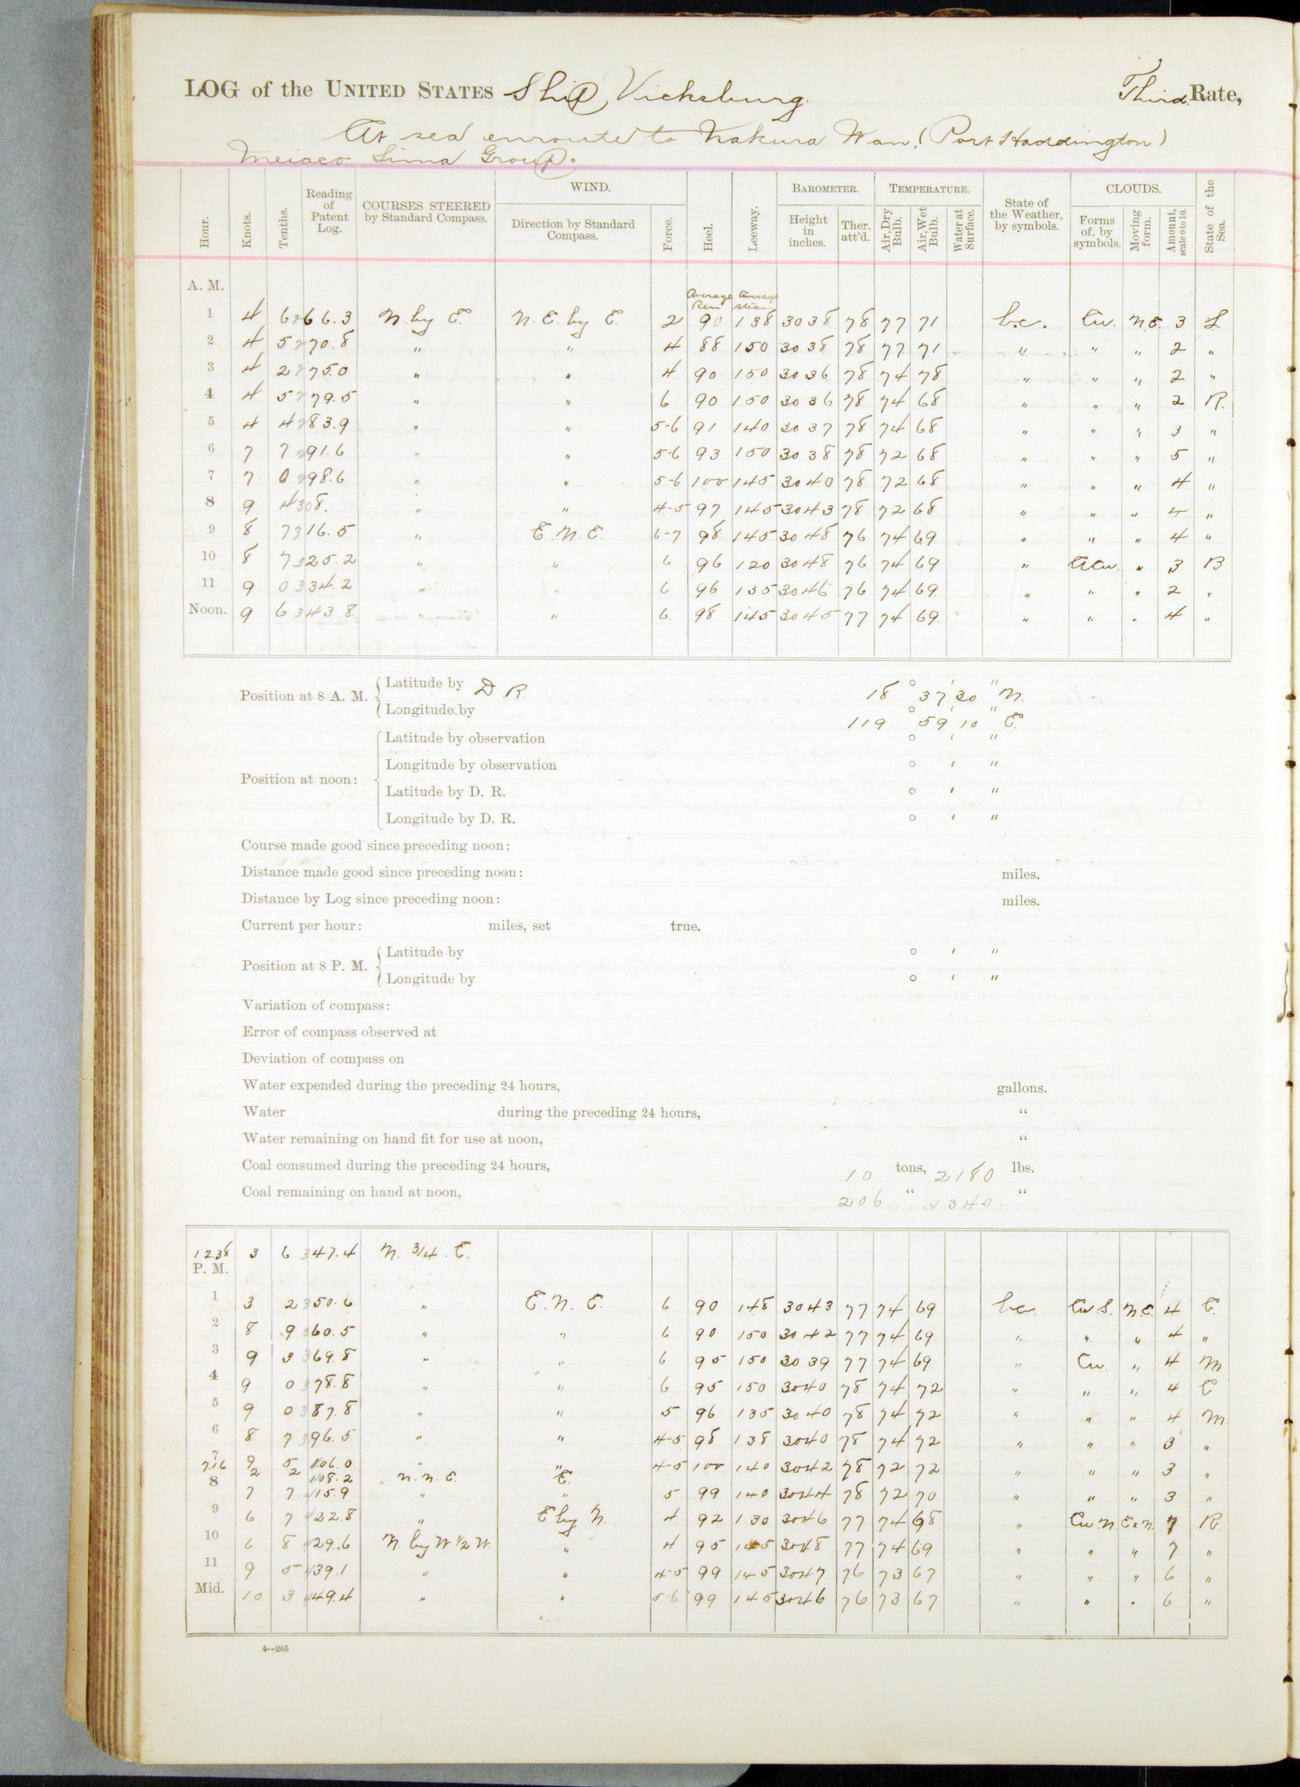 LOG of the UNITED STATES Ship Vicksburg. Third Rate,
At sea enroute to Nakura Wan. (Port Haddington)
Meiaco Sima Group.
Hour. Knots. Tenths. Reading of Patent Log. COURSES STEERED by Standard Compass. WIND. Direction by Standard Compass. Force. Heel. Leeway. BAROMETER. Height in inches. Ther. att'd. TEMPERATURE. Air, Dry Bulb. Air, Wet Bulb. Water at Surface. State of the Weather, by symbols. CLOUDS. Forms of, by symbols. Moving form. Amount, scale 0 to 10. State of the Sea.
A. M. Average Rev Average steam
1 4 6 266.3 N. by E. N. E. by E. 2 90 138 30 38 78 77 71 b.c. Cu. N.E. 3 L
2 4 5 270.8 " " 4 88 150 30 38 78 77 71 " " " 2 "
3 4 2 275.0 " " 4 90 150 30 36 78 74 78 " " " 2 "
4 4 5 279.5 " " 6 90 150 30 36 78 74 68 " " " 2 R.
5 4 4 283.9 " " 5-6 91 140 30 37 78 74 68 " " " 3 "
6 7 7 291.6 " " 5-6 93 150 30 38 78 72 68 " " " 5 "
7 7 0 298.6 " " 5-6 100 145 30 40 78 72 68 " " " 4 "
8 9 4 308. " " 4-5 97 145 30 43 78 72 68 " " " "
9 8 7 316.5 " E. N. E. 6-7 98 145 30 48 76 74 69 " " " 4 "
10 8 7 325.2 " " 6 96 120 30 48 76 74 69 " ACu. " 3 B
11 9 0 334.2 " " 6 96 135 30 46 76 74 69 " " " 2 "
Noon. 9 6 343.8 " " 6 98 145 30 45 77 74 69 " " " 4 "
Position at 8 A. M. Latitude by D R. 18 ° 37 ' 30 " N.
Longitude by 119 ° 59 ' 10 " E.
Position at noon: Latitude by observation ° ' "
Longitude by observation ° ' "
Latitude by D. R. ° ' "
Longitude by D. R. ° ' "
Course made good since preceding noon:
Distance made good since preceding noon: miles.
Distance by Log since preceding noon: miles.
Current per hour: miles, set true.
Position at 8 P. M. Latitude by ° ' "
Longitude by ° ' "
Variation of compass:
Error of compass observed at
Deviation of compass on
Water expended during the preceding 24 hours, gallons.
Water during the preceding 24 hours, "
Water remaining on hand fit for use at noon, "
Coal consumed during the preceding 24 hours, 10 tons, 2180 lbs.
Coal remaining on hand at noon, 206 " "
12 38 3 6 347.4 N. 3/4 E.
P. M.
1 3 2 350.6 " E. N. E. 6 90 148 30 43 77 74 69 b.c. Cu S. N.E. 4 C.
2 8 9 360.5 " " 6 90 150 30 42 77 74 69 " " " 4 "
3 9 3 369.8 " " 6 95 150 30 39 77 74 69 " Cu. " 4 M
4 9 0 378.8 " " 6 95 150 30 40 78 74 72 " " " 4 C
5 9 0 387.8 " " 5 96 135 30 40 78 74 72 " " " 4 M
6 8 7 396.5 " " 4-5 98 138 30 40 78 74 72 " " " 3 "
7 9 5 406.0 " " 4-5 100 140 30 42 78 72 72 " " " 3 "
7 16 2 2 408.2 N. N. E. E.
8 7 7 415.9 " " 5 99 140 30 44 78 72 70 " " " 3 "
9 6 7 422.8 " E by N. 4 92 130 30 46 77 74 68 " Cu N. E x N. 7 R.
10 6 8 429.6 N. by W 1/2 W. " 4 95 145 30 48 77 74 69 " " " 7 "
11 9 5 439.1 " " 4-5 99 145 30 47 76 73 67 " " " 6 "
Mid. 10 3 449.4 " " 5-6 99 145 30 46 76 73 67 " " " 6 "
4--265